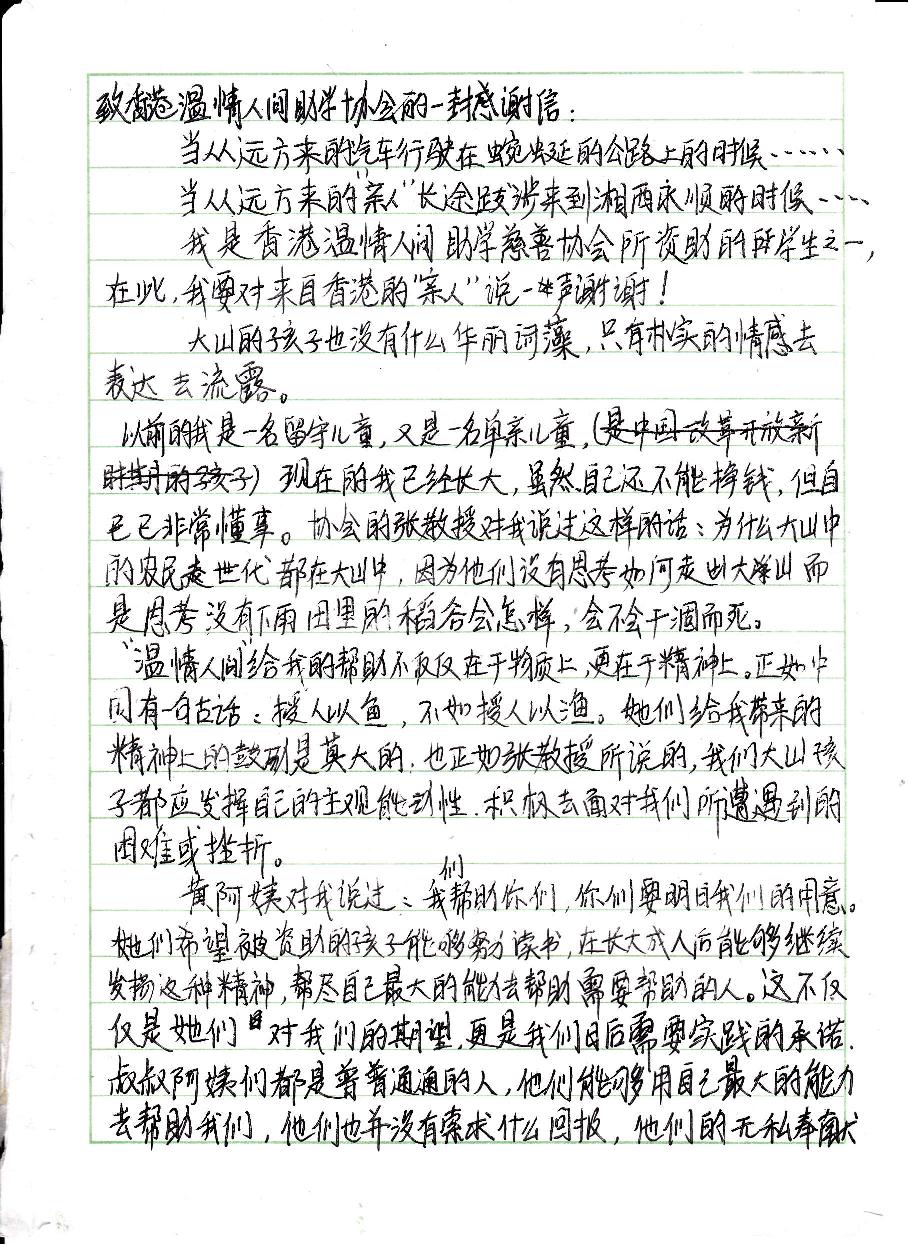 致香港温情人间助学协会的一封感谢信：
当从远方来的汽车行驶在蜿蜒的公路上的时候……
当从远方来的“亲人”长途跋涉来到湘西永顺的时候……
我是香港温情人间助学慈善协会所资助的学生之一，
在此，我要对来自香港的“亲人”说一声谢谢！
大山的孩子也没有什么华丽词藻，只有朴实的情感去
表达去流露。
以前的我是一名留守儿童，又是一名单亲儿童，（是中国改革开放新
时期的孩子）现在的我已经长大，虽然自己还不能挣钱，但自
己已非常懂事。协会的张教授对我说过这样的话：为什么大山中
的农民世代都在大山中，因为他们没有思考如何走出大山而
是思考没有下雨田里的稻谷会怎样，会不会干涸而死。
“温情人间”给我的帮助不仅仅在于物质上，更在于精神上。正如中
国有一句古话：授人以鱼，不如授人以渔。她们给我带来的
精神上的鼓励是莫大的，也正如张教授所说的，我们大山孩
子都应发挥自己的主观能动性，积极去面对我们所遭遇到的
困难或挫折。
黄阿姨对我说过：我们帮助你们，你们要明白我们的用意。
她们希望被资助的孩子能够努力读书，在长大成人后能够继续
发扬这种精神，帮尽自己最大的能力去帮助需要帮助的人。这不仅
仅是她们对我们的期望，更是我们日后需要实践的承诺.
叔叔阿姨们都是普普通通的人，他们能够用自己最大的能力
去帮助我们，他们也并没有索求什么回报，他们的无私奉献